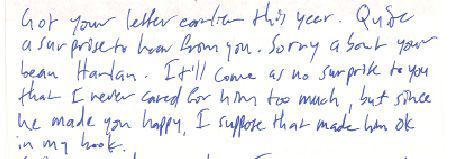 Got your letter earlier this year. Quite
a surprise to hear from you. Sorry about your
bean Harlan. It'll come as no surprise to you
that I never cared for him too much, but since
he made you happy, I suppose that made him ok
in my book.